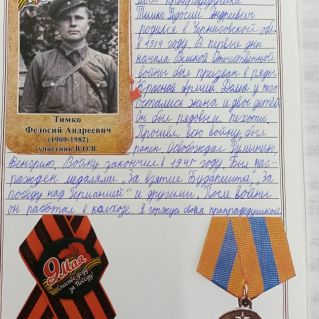 Тимко
Федосий Андреевич
(1909-1982)
участник В.О.В.
прапрадедушка
Тимко Федосий Андреевич
родился в Черниговской обл.
в 1909 году. В первые дни
начала Великой Отечественной
войны был призван в ряды
Красной армии. Дома у него
остались жена и двое детей.
Он был рядовым пехоты.
Прошел всю войну, был
ранен. Освобождал Румынию,
Венгрию. Войну закончил в 1945 году. Был наг-
ражден медалями „За взятие Будапешта", „За
победу над Германией" и другими. После войны
он работал в колхозе. Я горжусь своим прапрадедушкой
9 Мая
Спасибо деду
за Победу!